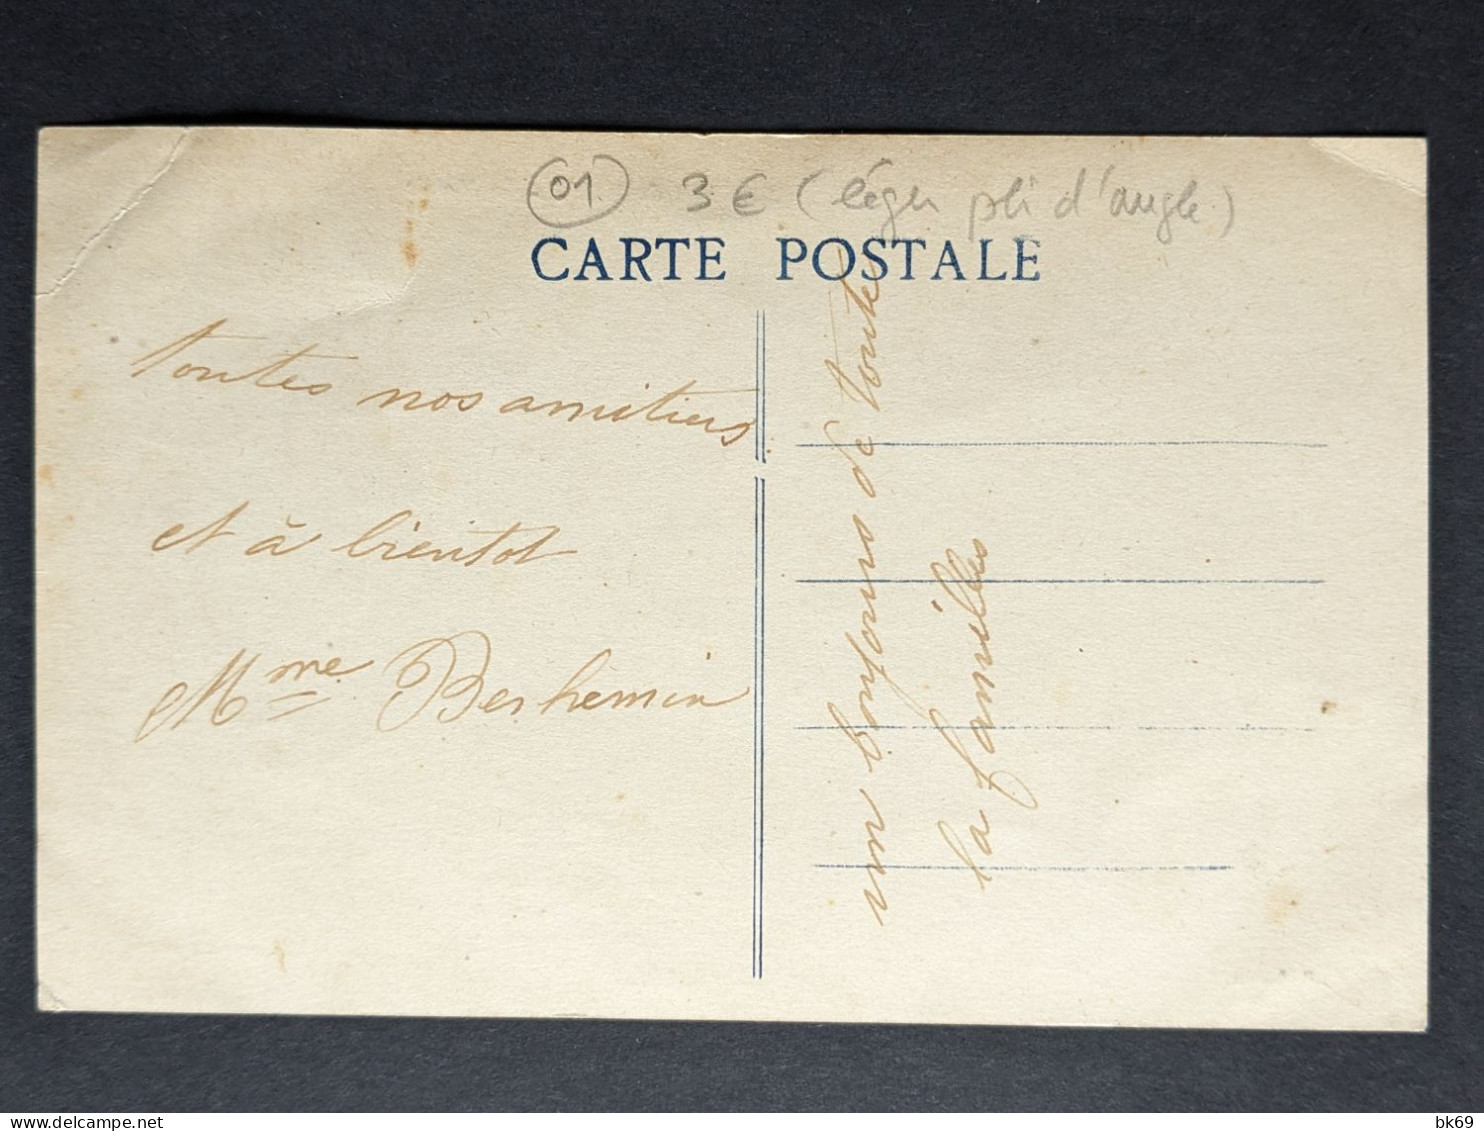 01 3 € (léger pli d'angle)
CARTE POSTALE
toutes nos amitiers
et à bientot
Mme Berhemin
un bonjours de toute
la familles
delcampe.net
bk69